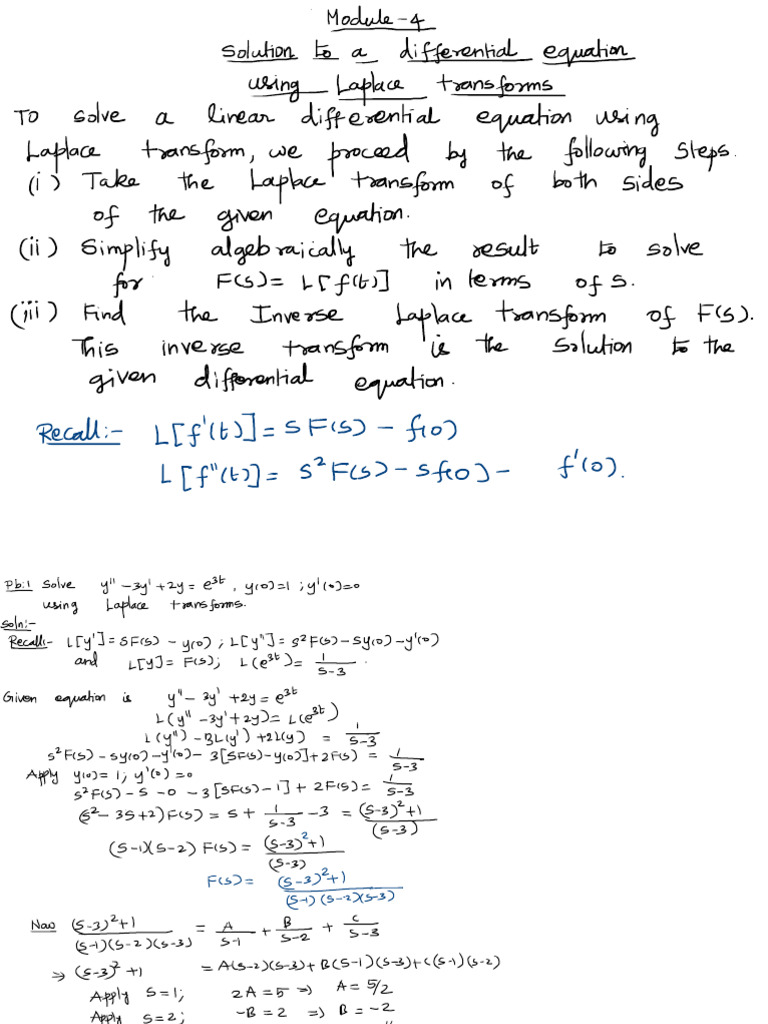 Module-4
Solution to a differential equation
using Laplace transforms
To solve a linear differential equation using
Laplace transform, we proceed by the following steps.
(i) Take the Laplace transform of both sides
of the given equation.
(ii) Simplify algebraically the result to solve
for F(s)= L[f(t)] in terms of s.
(iii) Find the Inverse Laplace transform of F(s).
This inverse transform is the solution to the
given differential equation.
Recall:- L[f'(t)] = S F(s) - f(0)
L[f''(t)] = S² F(s) - S f(0) - f'(0).
Pb:1 Solve y'' - 3y' + 2y = e^{3t}, y(0)=1 ; y'(0)=0
using Laplace transforms.
Soln:-
Recall:- L[y'] = SF(s) - y(0) ; L[y''] = s²F(s) - Sy(0) - y'(0)
and L[y] = F(s); L(e^{3t}) = 1/(S-3).
Given equation is y'' - 3y' + 2y = e^{3t}
L(y'' - 3y' + 2y) = L(e^{3t})
L(y'') - 3L(y') + 2L(y) = 1/(S-3)
s²F(s) - Sy(0) - y'(0) - 3[SF(s) - y(0)] + 2F(s) = 1/(S-3)
Apply y(0) = 1; y'(0) = 0
s²F(s) - S - 0 - 3[SF(s) - 1] + 2F(s) = 1/(S-3)
(s² - 3S + 2) F(s) = S + 1/(S-3) - 3 = ((S-3)² + 1)/(S-3)
(S-1)(S-2) F(s) = ((S-3)² + 1)/(S-3)
F(s) = ((S-3)² + 1)/((S-1)(S-2)(S-3))
Now ((S-3)² + 1)/((S-1)(S-2)(S-3)) = A/(S-1) + B/(S-2) + C/(S-3)
⇒ (S-3)² + 1 = A(S-2)(S-3) + B(S-1)(S-3) + C(S-1)(S-2)
Apply S = 1; 2A = 5 ⇒ A = 5/2
Apply S = 2; -B = 2 ⇒ B = -2